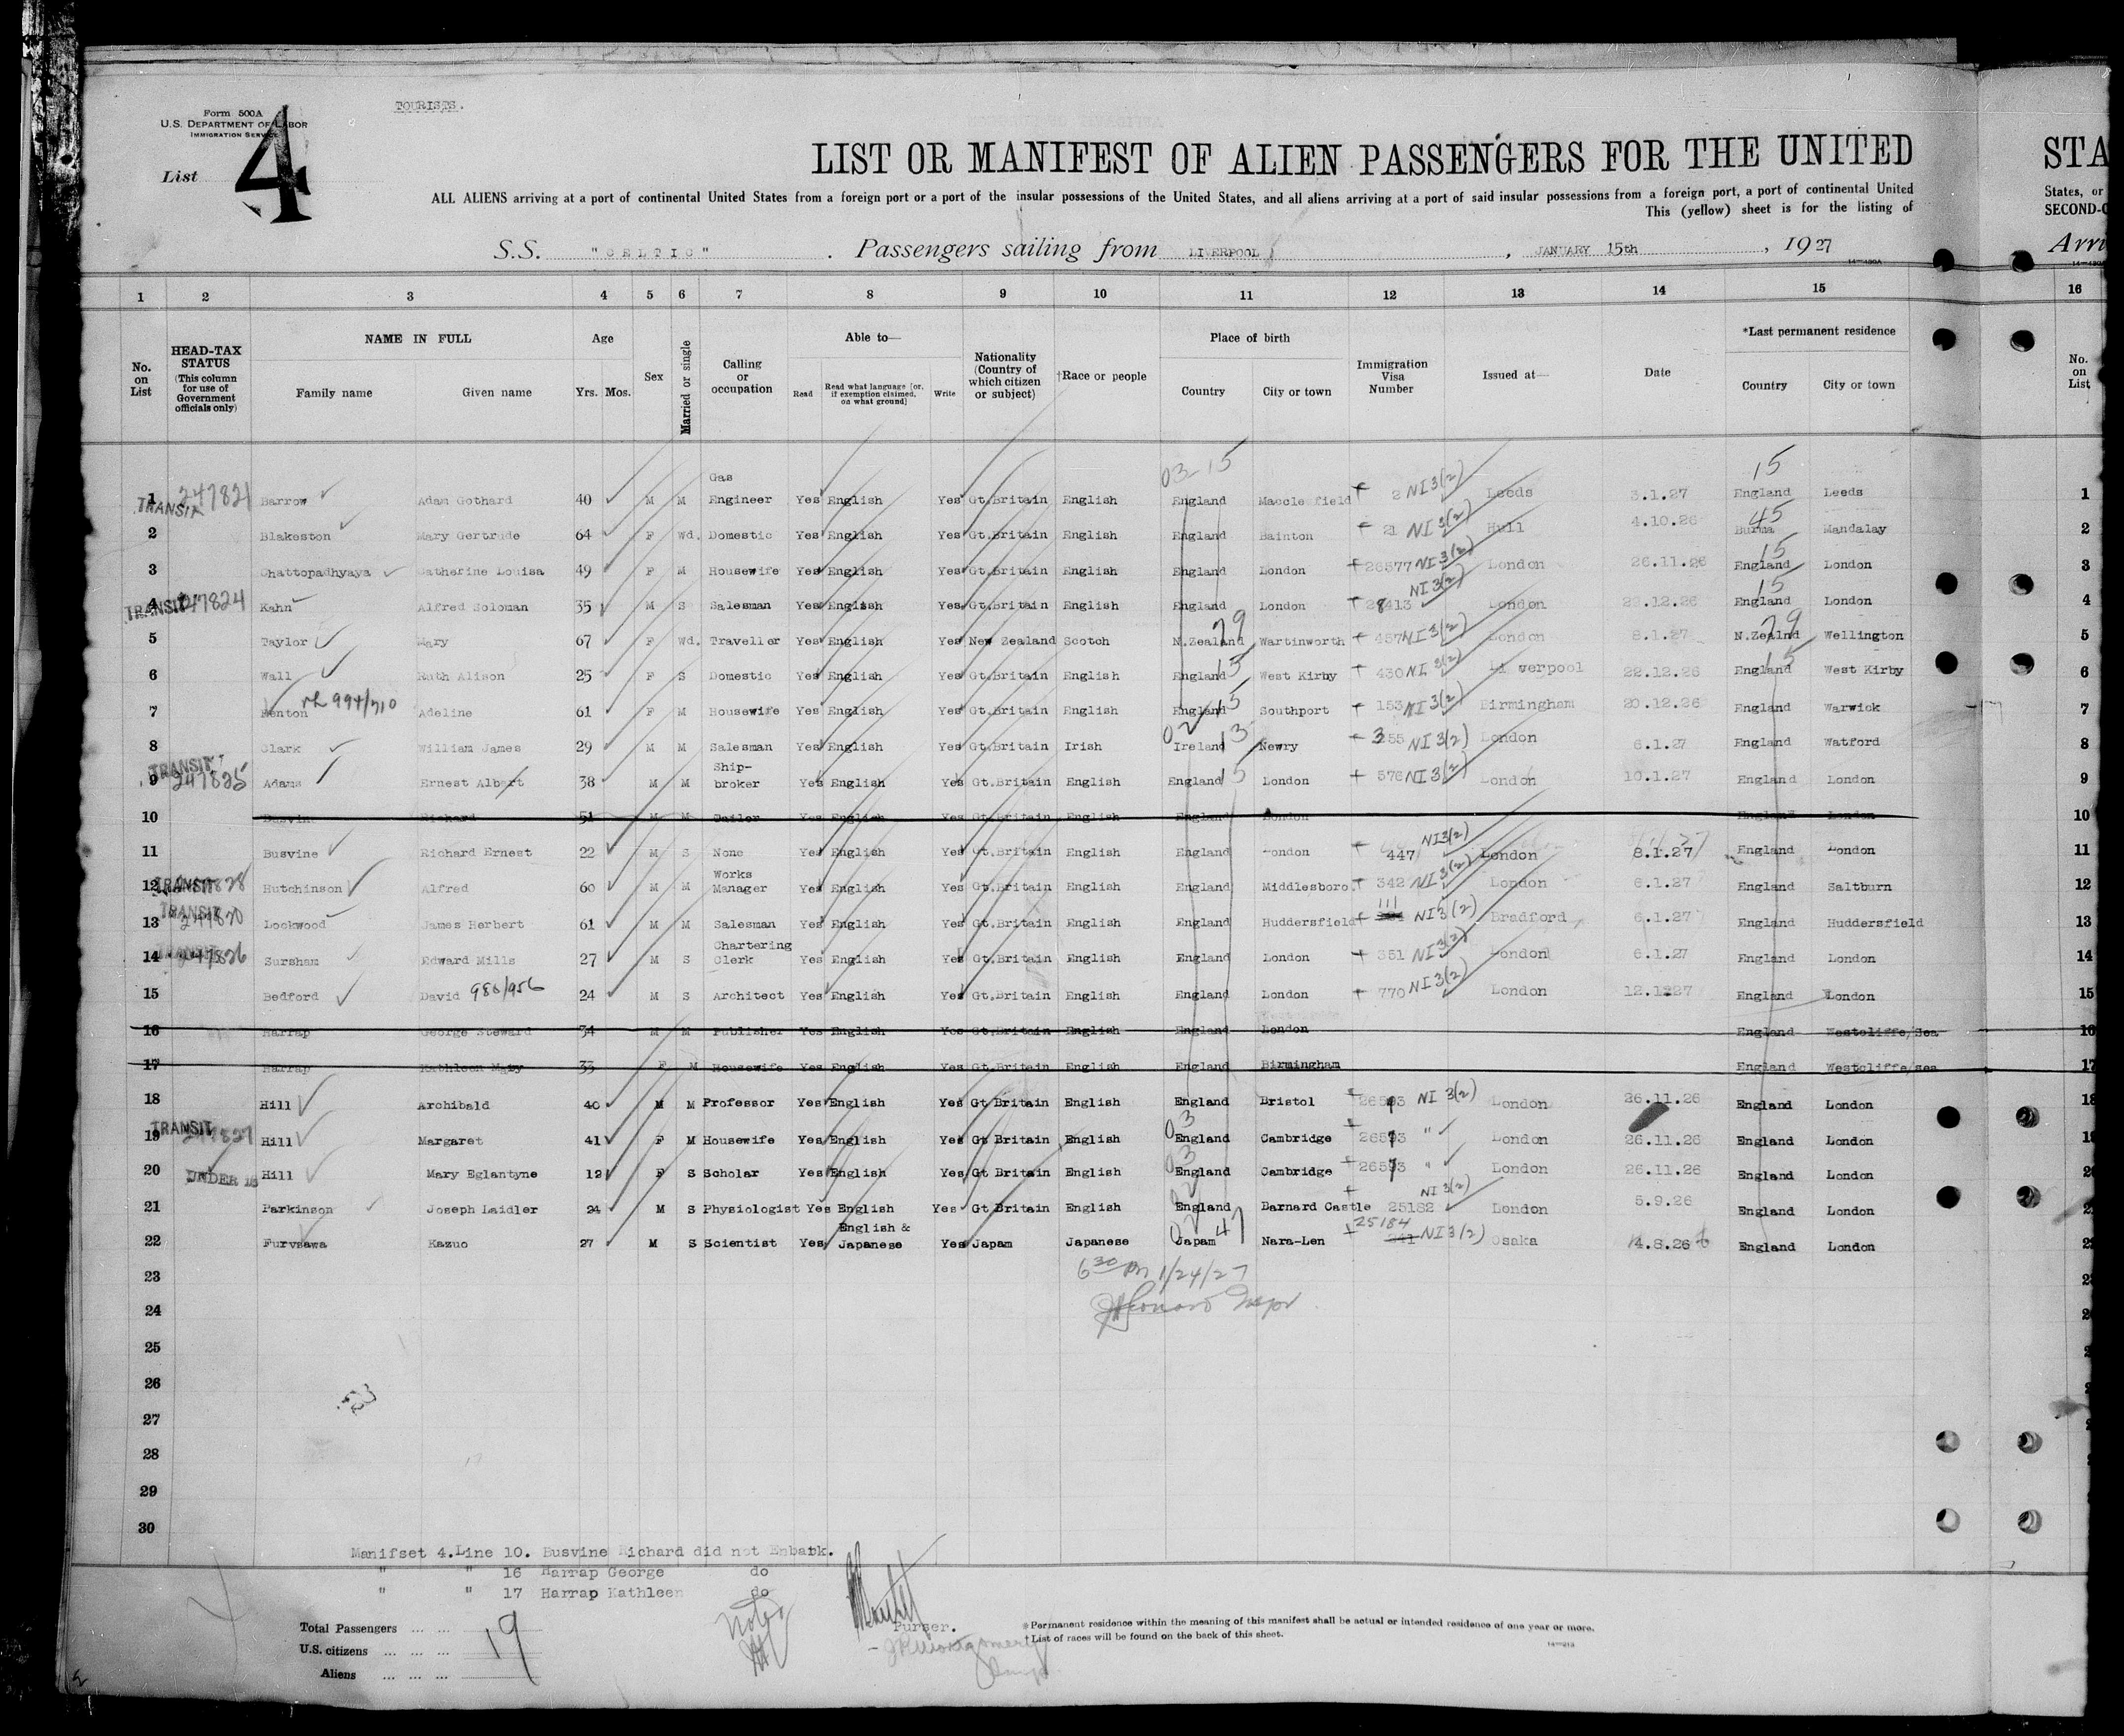 TOURISTS.
Form 500A
U.S. DEPARTMENT OF LABOR
IMMIGRATION SERVICE
List 4
LIST OR MANIFEST OF ALIEN PASSENGERS FOR THE UNITED
STA
ALL ALIENS arriving at a port of continental United States from a foreign port or a port of the insular possessions of the United States, and all aliens arriving at a port of said insular possessions from a foreign port, a port of continental United
States, or
This (yellow) sheet is for the listing of
SECOND-C
S.S. "CELTIC". Passengers sailing from LIVERPOOL, JANUARY 15th, 1927
Arri
1 2 3 4 5 6 7 8 9 10 11 12 13 14 15 16
No. on List
HEAD-TAX STATUS (This column for use of Government officials only)
NAME IN FULL
Family name Given name
Age
Yrs. Mos.
Sex
Married or single
Calling or occupation
Able to—
Read Read what language [or, if exemption claimed, on what ground] Write
Nationality (Country of which citizen or subject)
†Race or people
Place of birth
Country City or town
Immigration Visa Number
Issued at—
Date
*Last permanent residence
Country City or town
No. on List
03 15 15
1 TRANSIT 247821 Barrow Adam Gothard 40 M M Gas Engineer Yes English Yes Gt.Britain English England Macclesfield 2 NI3(2) Leeds 3.1.27 England Leeds 1
2 Blakeston Mary Gertrude 64 F Wd. Domestic Yes English Yes Gt.Britain English England Bainton 21 NI3(2) Hull 4.10.26 Burma 45 Mandalay 2
3 Chattopadhyaya Catherine Louisa 49 F M Housewife Yes English Yes Gt.Britain English England London 26577 NI3(2) London 26.11.26 England 15 London 3
4 TRANSIT 247824 Kahn Alfred Soloman 35 M S Salesman Yes English Yes Gt.Britain English England London 28413 NI3(2) London 12.26 England 15 London 4
5 Taylor Mary 67 F Wd. Traveller Yes English Yes New Zealand Scotch N.Zealand 79 Wartinworth 457 NI3(2) London 8.1.27 N.Zealnd 79 Wellington 5
6 Wall Ruth Alison 25 F S Domestic Yes English Yes Gt.Britain English England 15 West Kirby 430 NI3(2) Li verpool 22.12.26 England 15 West Kirby 6
7 Benton 994/710 Adeline 61 F M Housewife Yes English Yes Gt.Britain English England 15 Southport 153 NI3(2) Birmingham 20.12.26 England Warwick 7
8 Clark William James 29 M M Salesman Yes English Yes Gt.Britain Irish 02 Ireland 13 Newry 355 NI3(2) London 6.1.27 England Watford 8
9 TRANSIT 247825 Adams Ernest Albert 38 M M Ship-broker Yes English Yes Gt.Britain English England 15 London 576 NI3(2) London 10.1.27 England London 9
10 Busvine Richard 51 M M Tailor Yes English Yes Gt.Britain English England London England London 10
11 Busvine Richard Ernest 22 M S None Yes English Yes Gt.Britain English England London 447 NI3(2) London 8.1.27 England London 11
12 TRANSIT Hutchinson Alfred 60 M M Works Manager Yes English Yes Gt.Britain English England Middlesboro. 342 NI3(2) London 6.1.27 England Saltburn 12
13 TRANSIT Lockwood James Herbert 61 M M Salesman Yes English Yes Gt.Britain English England Huddersfield 111 NI3(2) Bradford 6.1.27 England Huddersfield 13
14 TRANSIT 247826 Sursham Edward Mills 27 M S Chartering Clerk Yes English Yes Gt.Britain English England London 351 NI3(2) London 6.1.27 England London 14
15 Bedford David 980/956 24 M S Architect Yes English Yes Gt.Britain English England London 770 NI3(2) London 12.1.27 England London 15
16 Harrap George Steward 34 M M Publisher Yes English Yes Gt.Britain English England London England Westcliffe/Sea 16
17 Harrap Kathleen Mary 33 F M Housewife Yes English Yes Gt.Britain English England Birmingham England Westcliffe/sea 17
18 Hill Archibald 40 M M Professor Yes English Yes Gt Britain English England Bristol NI 3(2) London 26.11.26 England London 18
19 TRANSIT 247827 Hill Margaret 41 F M Housewife Yes English Yes Gt Britain English 03 England Cambridge " London 26.11.26 England London
20 UNDER 16 Hill Mary Eglantyne 12 F S Scholar Yes English Yes Gt Britain English 03 England Cambridge " London 26.11.26 England London
21 Parkinson Joseph Laidler 24 M S Physiologist Yes English Yes Gt Britain English England Barnard Castle 25182 NI 3(2) London 5.9.26 England London
22 Furvsawa Kazuo 27 M S Scientist Yes English & Japanese Yes Japam Japanese Japam 47 Nara-Len 25184 241 NI3(2) Osaka 4.8.26 England London
23
6 30 Pm 1/24/27
24
25
26
27
28
29
30
Manifset 4.Line 10. Busvine Richard did not Embark.
" " 16 Harrap George do
" " 17 Harrap Kathleen do
Noted
Purser.
Total Passengers 19
U.S. citizens
Aliens
*Permanent residence within the meaning of this manifest shall be actual or intended residence of one year or more.
†List of races will be found on the back of this sheet.